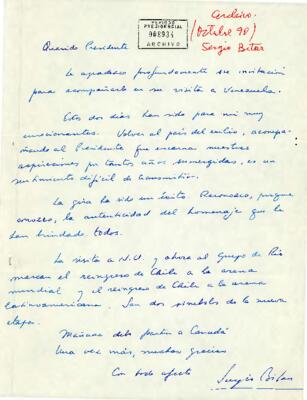 PERIODO
PRESIDENCIAL
008934
ARCHIVO
Archivo.
(Octubre 90)
Sergio Bitar
Querido Presidente
Le agradezco profundamente su invitación
para acompañarlo en su visita a Venezuela.
Estos dos días han sido para mi muy
emocionantes. Volver al país del exilio, acompa-
ñando al Presidente que encarna nuestras
aspiraciones por tantos años sumergidas, es un
sentimiento difícil de transmitir.
La gira ha sido un éxito. Reconozco, porque
conozco, la autenticidad del homenaje que le
han brindado todos.
La visita a N.U. y ahora al Grupo de Río
marcan el reingreso de Chile a la arena
mundial y el reingreso de Chile a la arena
latinoamericana. Son dos símbolos de la nueva
etapa.
Mañana debo partir a Canadá
Una vez más, muchas gracias
Con todo afecto
Sergio Bitar